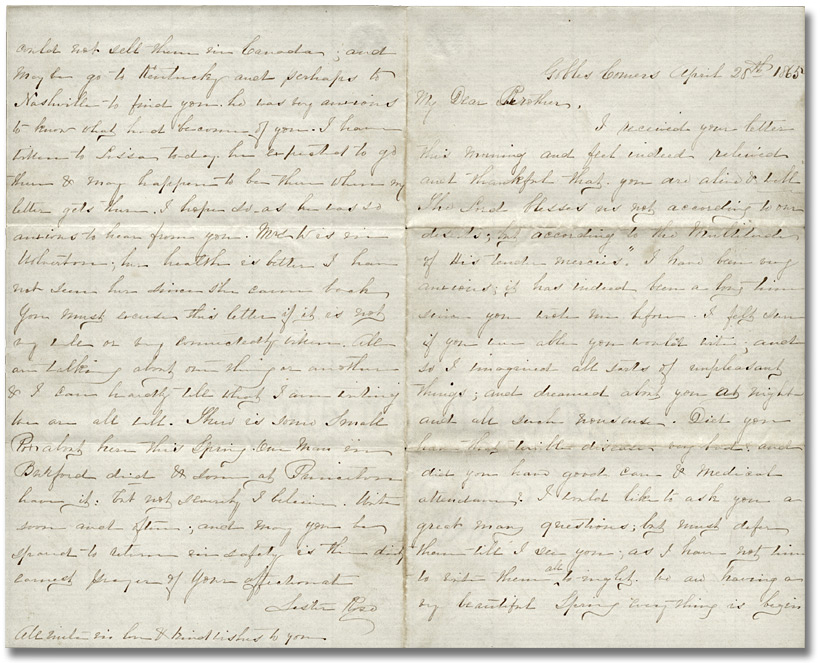 Gobles Corners April 28th 1865
My Dear Brother,
I received your letter
this morning and feel indeed relieved
and thankful that you are alive & well
The Lord blesses us not according to our
deserts; but according to the Multitude
of His tender mercies." I have been very
anxious; it has indeed been a long time
since you wrote me before. I felt sure
if you were able you would write; and
so I imagined all sorts of unpleasant
things; and dreamed about you at night
and all such nonsense. Did you
have that terrible disease very bad; and
did you have good care & Medical
attendance? I would like to ask you a
great many questions; but must defer
them till I see you, as I have not time
to write them all to night. We are having a
very beautiful Spring every thing is begin
could not sell them in Canada; and
may be go to Kentucky and perhaps to
Nashville to find you. he was very anxious
to know what had become of you. I have
written to Lissa to day, he expected to go
there & may happen to be there when my
letter gets there. I hope so as he was so
anxious to hear from you. Mrs W is in
Wolverton; her health is better I have
not seen her since she came back
You must excuse this letter if it is not
very wise or very connectedly written. All
are talking about one thing or another
& I can hardly tell what I am writing
We are all well. There is some Small
Pox about here this Spring. One Man in
Burford died & some at Princeton
have it; but not severely I believe. Write
soon and often; and may you be
spared to return in safety is the daily
earnest prayer of Your affectionate
Sister Rose
All unite in love & kind wishes to you